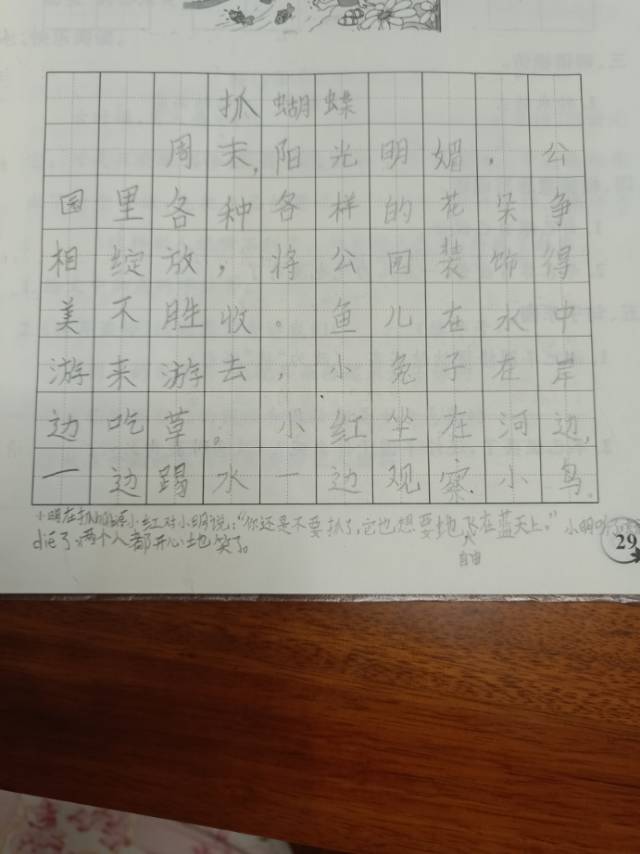 抓蝴蝶
周末,阳光明媚，公
园里各种各样的花朵争
相绽放，将公园装饰得
美不胜收。鱼儿在水中
游来游去，小兔子在岸
边吃草。小红坐在河边,
一边踢水一边观察小鸟。
小明在抓蝴蝶小红对小明说："你还是不要抓了,它也想要地飞在蓝天上。"小明听
自由
diē了,两个人都开心地笑了。
29